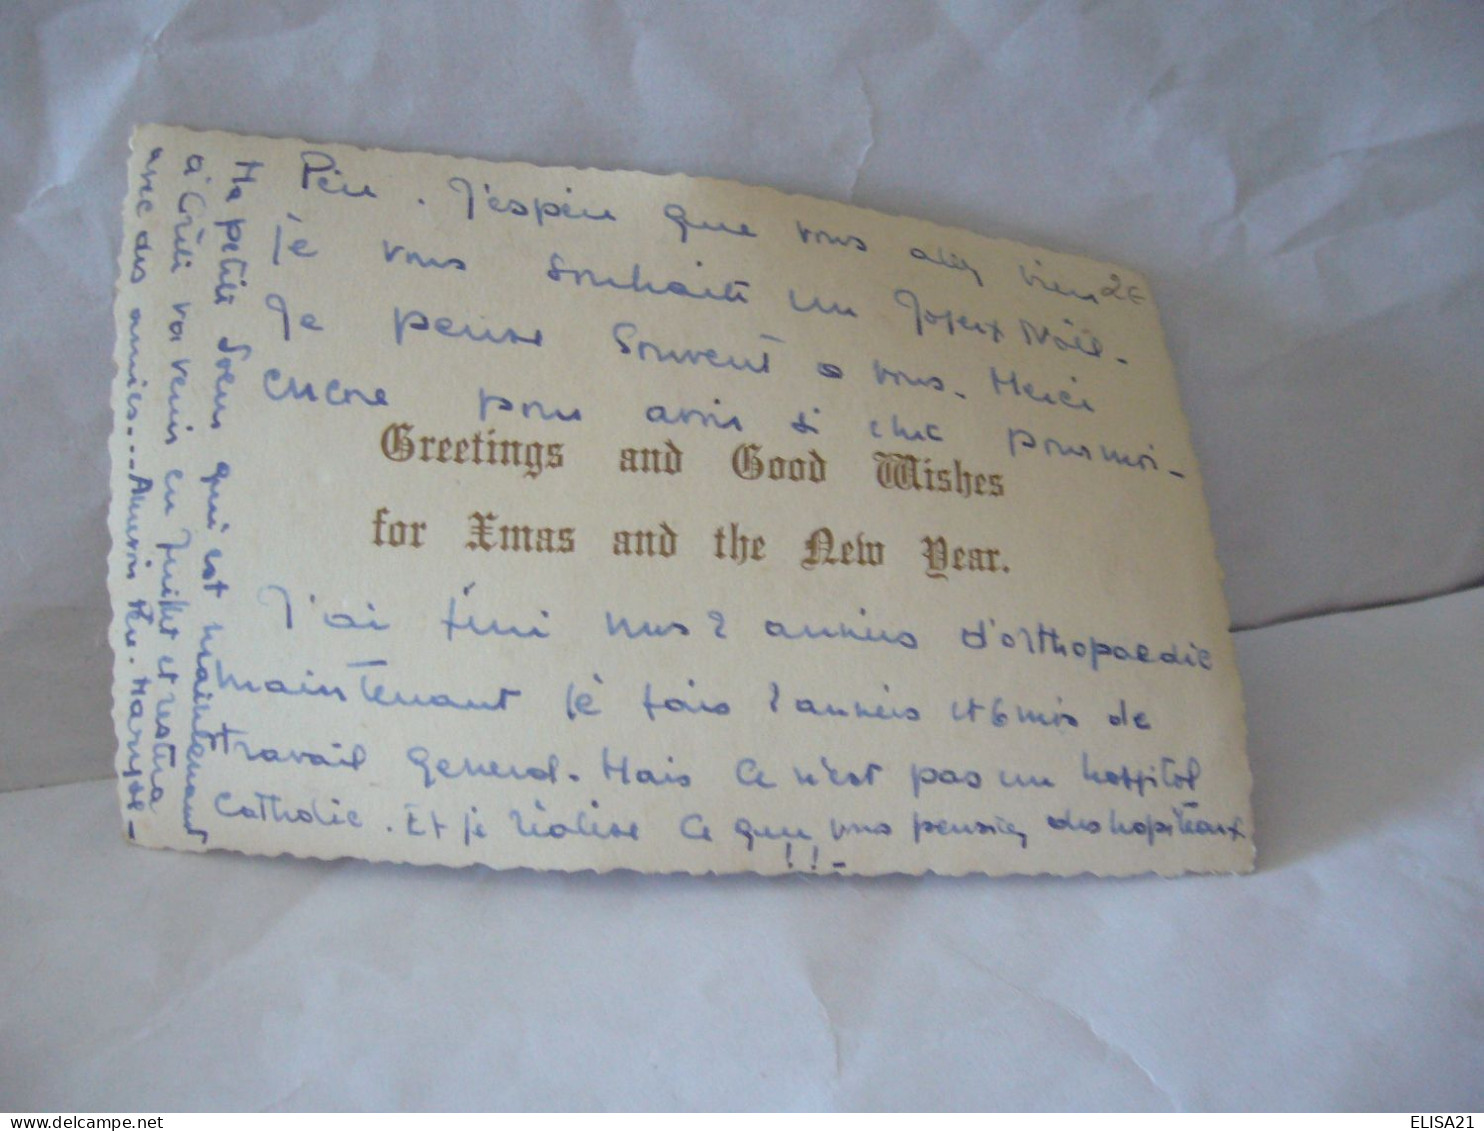 Père. J'espère que vous allez bien
2€
Je vous souhaite un Joyeux Noël.
Je pense souvent a vous. Merci
encore pour avoir si chic pour moi.
Greetings and Good Wishes
for Xmas and the New Year.
J'ai fini mes 2 années d'orthopaedic
maintenant je fais 2 années et 6 mois de
travail general. Mais ce n'est pas un hospital
catholic. Et je réalise ce que vous pensiez des hopitaux
!!-
Ma petite Soeur qui est maintenant
à va venir en Juillet et restera
avec des amies... Père. Maryse-
ELISA21